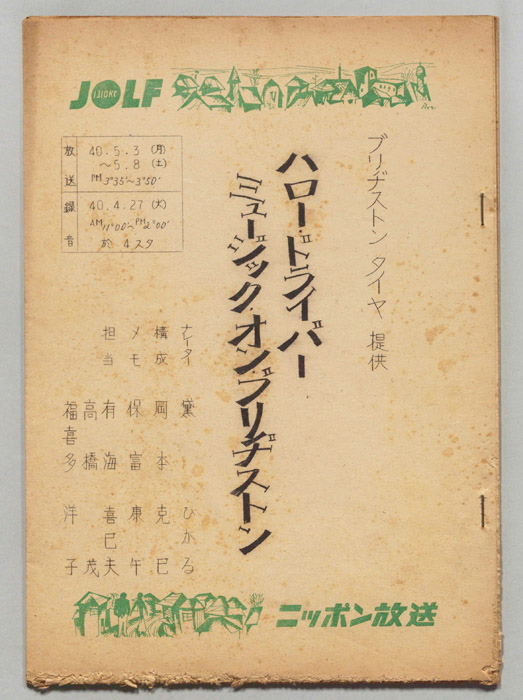 JOLF
放送 40.5.3(月)
〜5.8(土)
PM3°35'〜3°50'
録音 40.4.27(火)
AM11°00'〜PM2°00'
於 4スタ
ブリヂストン タイヤ 提供
ハロー・ドライバー
ミュージック・オン・ブリヂストン
ナレーター 黛 ひかる
構成 岡本 克巳
メモ 保富 康午
担当 有海 喜巳夫
高橋 茂
福喜多 洋子
ニッポン放送